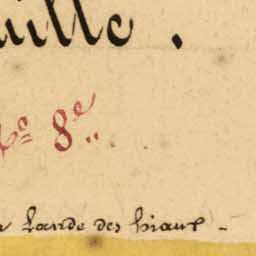 uille.
8e..
Lande des hiaux -